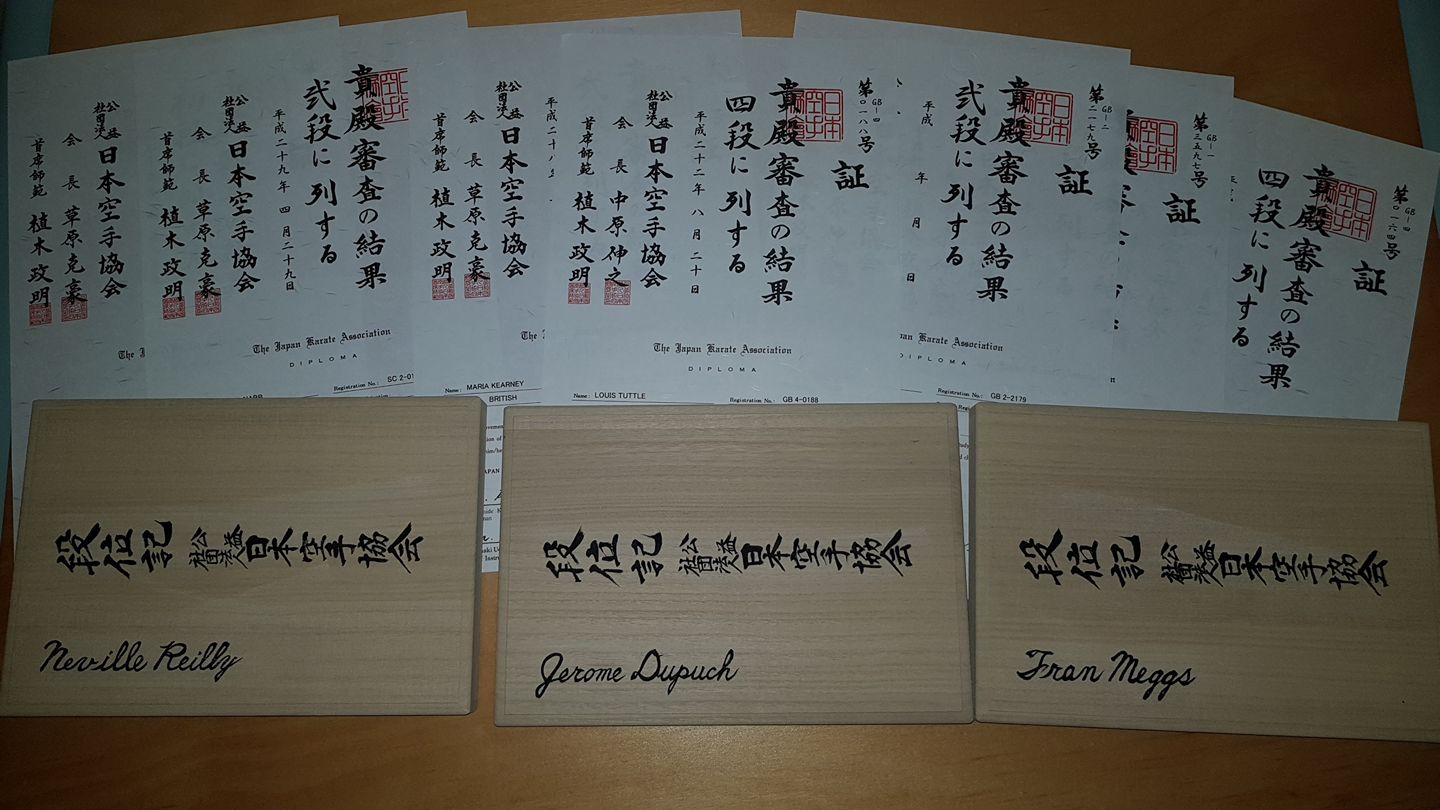 公益
社団法人
日本空手協会
会長 草原克豪
首席師範 植木政明
貴殿審査の結果
弐段に列する
平成二十九年 四月二十九日
公益
社団法人
日本空手協会
会長 草原克豪
首席師範 植木政明
The Japan Karate Association
DIPLOMA
Registration No.: SC 2-01
公益
社団法人
日本空手協会
会長 草原克豪
首席師範 植木政明
Name: MARIA KEARNEY
BRITISH
第 GB-四 〇一八八号
証
貴殿審査の結果
四段に列する
平成二十二年 八月二十日
公益
社団法人
日本空手協会
会長 中原伸之
首席師範 植木政明
The Japan Karate Association
DIPLOMA
Name: LOUIS TUTTLE
Registration No.: GB 4-0188
第 GB-二 二一七九号
証
貴殿審査の結果
弐段に列する
平成 年 月 日
pan Karate Association
DIPLOMA
Registration No.: GB 2-2179
第 GB-一 三五九七号
証
第 GB-四 〇一六四号
証
貴殿審査の結果
四段に列する
段位記 公益社団法人 日本空手協会
Neville Reilly
段位記 公益社団法人 日本空手協会
Jerome Dupuch
段位記 公益社団法人 日本空手協会
Fran Meggs